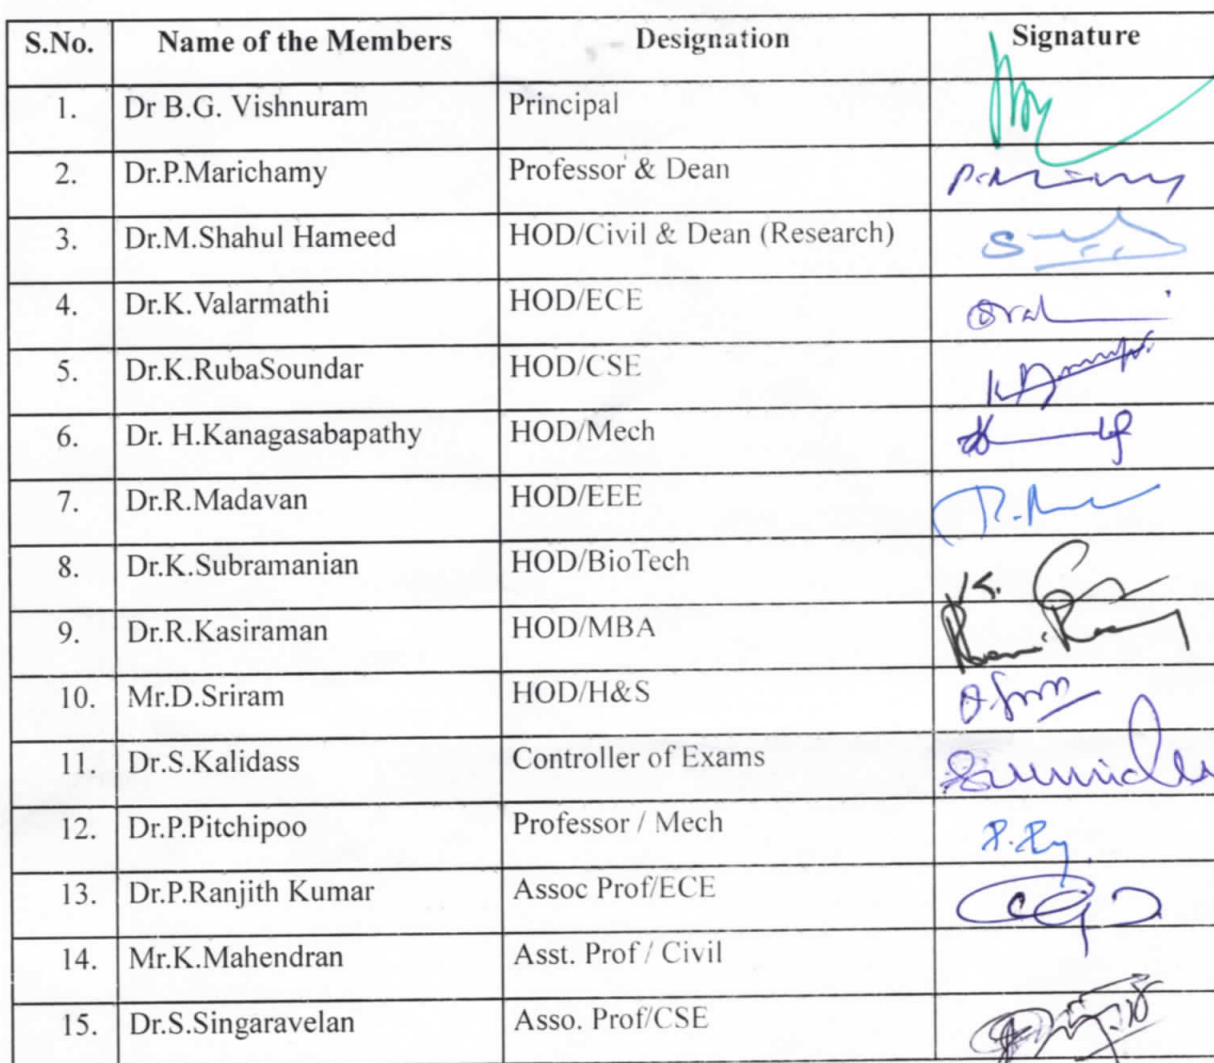 S.No. Name of the Members Designation Signature
1. Dr B.G. Vishnuram Principal
2. Dr.P.Marichamy Professor & Dean
3. Dr.M.Shahul Hameed HOD/Civil & Dean (Research)
4. Dr.K.Valarmathi HOD/ECE
5. Dr.K.RubaSoundar HOD/CSE
6. Dr. H.Kanagasabapathy HOD/Mech
7. Dr.R.Madavan HOD/EEE
8. Dr.K.Subramanian HOD/BioTech
9. Dr.R.Kasiraman HOD/MBA
10. Mr.D.Sriram HOD/H&S
11. Dr.S.Kalidass Controller of Exams
12. Dr.P.Pitchipoo Professor / Mech
13. Dr.P.Ranjith Kumar Assoc Prof/ECE
14. Mr.K.Mahendran Asst. Prof / Civil
15. Dr.S.Singaravelan Asso. Prof/CSE